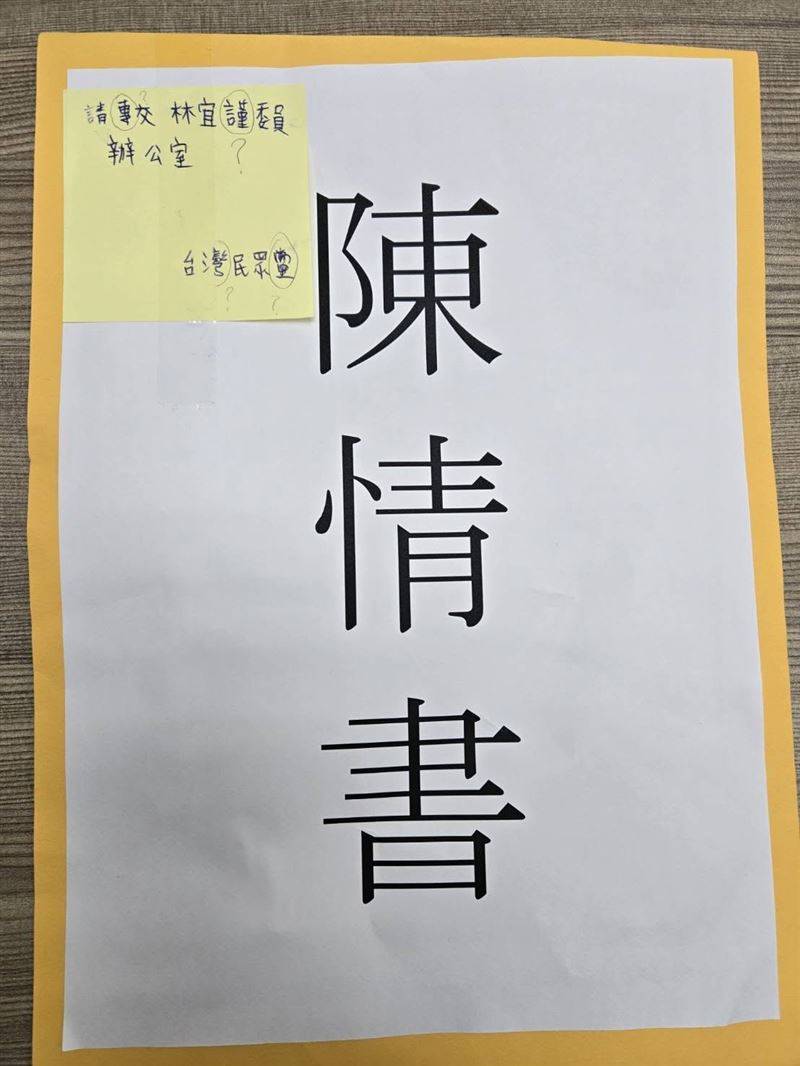 請專交 林宜謹委員
辦公室 ?
台灣民眾黨
? ?
陳
情
書